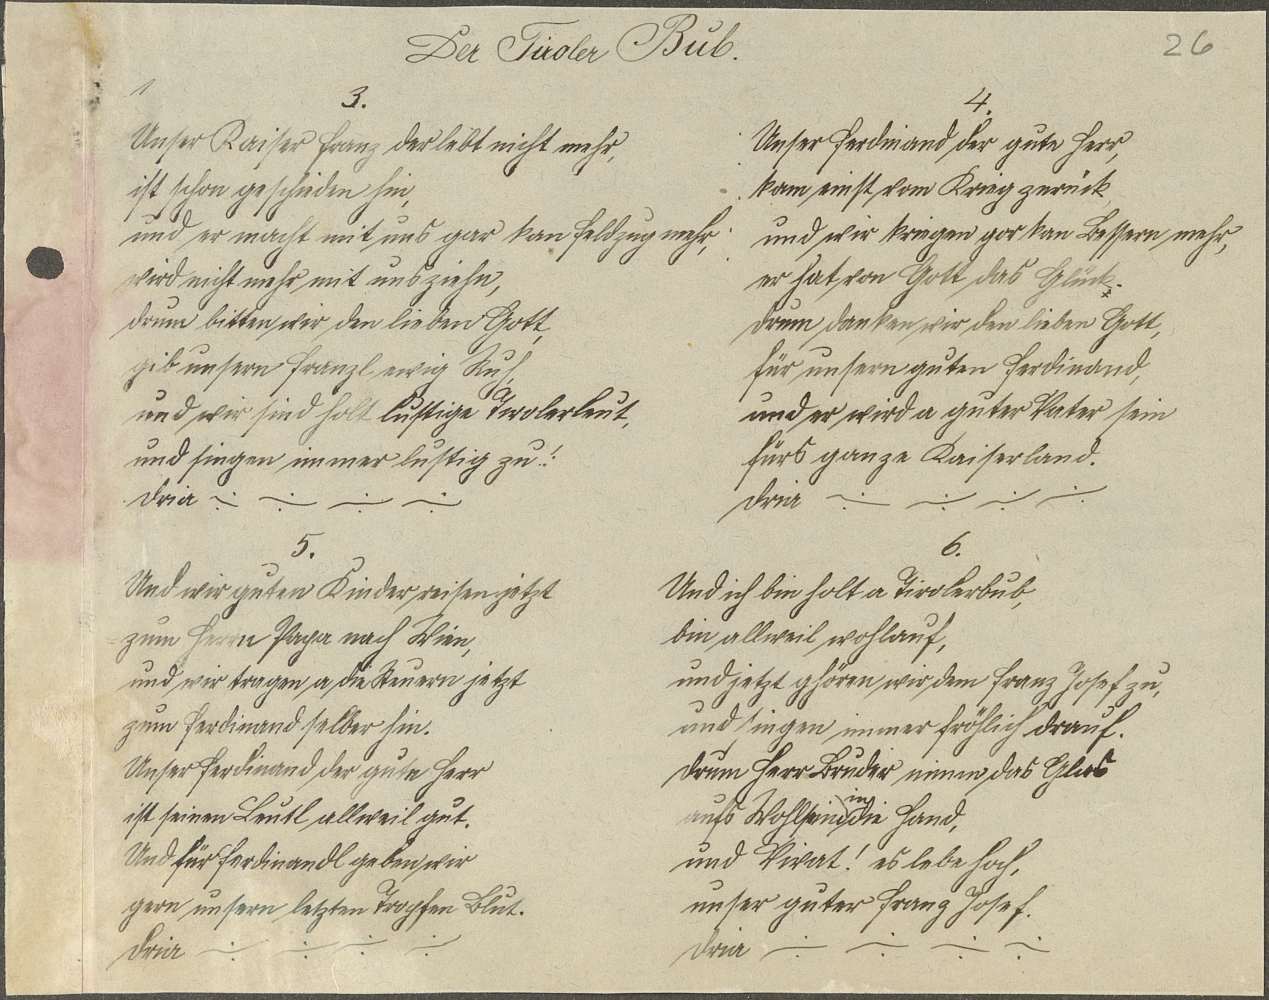 Der Tiroler Bub.
26
3.
Unser Kaiser Franz der lebt nicht mehr,
ist schon geschieden hin,
und er macht mit uns gar kan Feldzug mehr,
wird nicht mehr mit uns ziehn,
drum bitten wir den lieben Gott,
gib unsern Franzl ewig Ruh,
und wir sind holt lustige Tirolerleut,
und singen immer lustig zu!
Dria
4.
Unser Ferdinand der gute Herr,
kam einst vom Krieg zurück
und wir kriegen gor kan Bessern mehr,
er hat von Gott das Glück.
Drum danken wir den lieben Gott,
für unsern guten Ferdinand,
und er wird a guter Vater sein
fürs ganze Kaiserland.
Dria
5.
Und wir guten Kinder reisen jetzt
zum Herrn Papa nach Wien,
und wir tragen a die Steuern jetzt
zum Ferdinand selber hin.
Unser Ferdinand der gute Herr
ist seinen Leutl allweil gut.
Und für Ferdinandl geben wir
gern unsern letzten Tropfen Blut.
Dria
6.
Und ich bin holt a Tirolerbub,
bin allweil wohlauf,
und jetzt ghören wir dem Franz Josef zu,
und singen immer fröhlich drauf.
Drum Herr Bruder nimm das Glas
aufs Wohlsein in die Hand,
und Vivat! es lebe hoch,
unser guter Franz Josef.
Dria